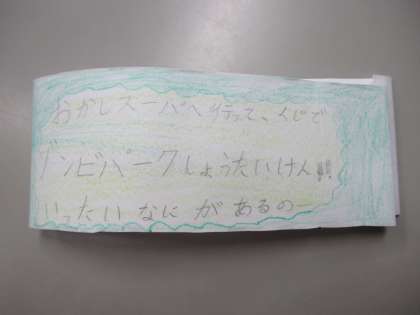 おかしスーパへ行って、くじで
ゾンビパークしょうたいけん!!!
いったいなにがあるのー